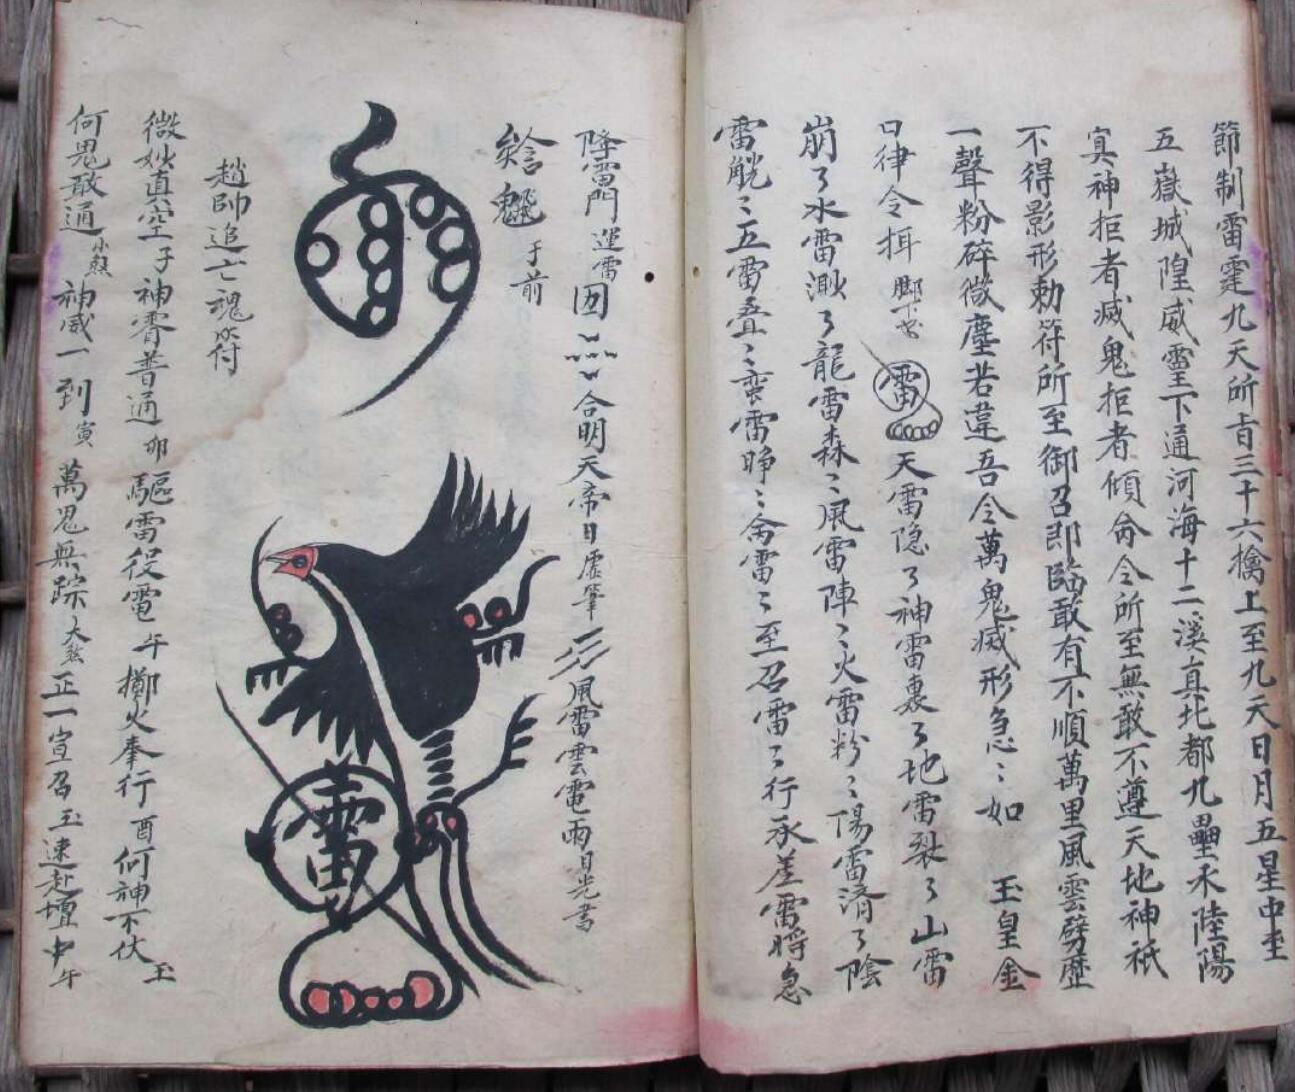 節制雷霆九天所旨三十六擒上至九天日月五星中至
五嶽城隍威靈下通河海十二溪真北都九壘水陸陽
真神拒者滅鬼拒者傾侖令所至無敢不遵天地神祇
不得影形勅符所至御召即臨敢有不順萬里風雲劈歷
一聲粉碎微塵若違吾令萬鬼滅形急〻如 玉皇金
口律令 雷 天雷隐了神雷裏了地雷裂了山雷
崩了水雷了龍雷森〻風雷陣〻火雷粉〻陽雷濟了陰
雷〻五雷叠〻蛮雷睁〻侖雷〻至召雷〻行承差雷將急
降雷門 運雷 合明天帝日 虚筆 風雷雲電雨日光書
于前
雷
趙帥追亡魂符
微妙真空 子 神霄普通 卯 驅雷役電 午 擲火奉行 酉 何神不伏 玉
何鬼敢通 小煞 神威一到 寅 萬鬼無踪 大煞 正一宣召 玉 速赴壇中 午